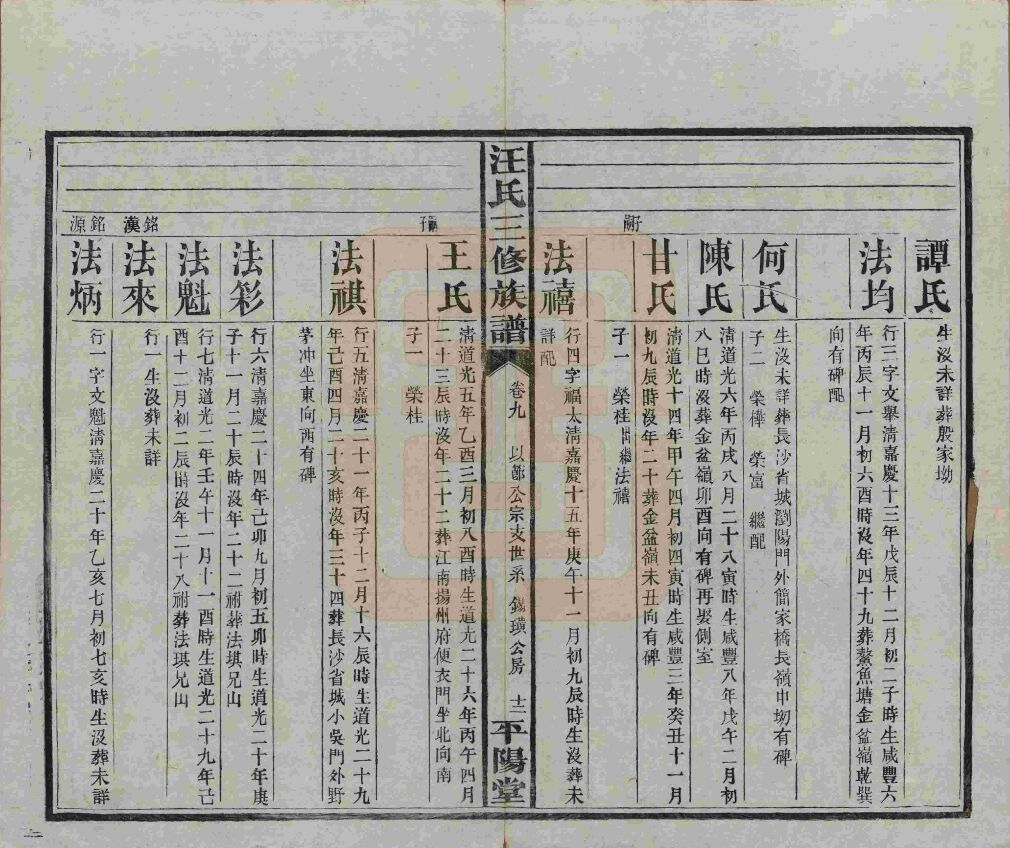 譚氏
生沒未詳葬殷家坳
法均
行三字文舉清嘉慶十三年戊辰十二月初二子時生咸豐六
年丙辰十一月初六酉時沒年四十九葬鰲魚塘金盆嶺乾巽
向有碑配
何氏
生沒未詳葬長沙省城瀏陽門外簡家橋長嶺中坳有碑
子二 榮樺 榮富 繼配
陳氏
清道光六年丙戌八月二十八寅時生咸豐八年戊午二月初
八巳時沒葬金盆嶺卯酉向有碑再娶側室
甘氏
清道光十四年甲午四月初四寅時生咸豐三年癸丑十一月
初九辰時沒年二十葬金盆嶺未丑向有碑
子一 榮桂 繼法禧
法禧
行四字福太清嘉慶十五年庚午十一月初九辰時生沒葬未
詳配
汪氏三修族譜
卷九
以鄯公宗支世系
公房
十二
平陽堂
王氏
清道光五年乙酉三月初八酉時生道光二十六年丙午四月
二十三辰時沒年二十二葬江南揚州府便衣門坐北向南
子一 榮桂
法祺
行五清嘉慶二十一年丙子十二月十六辰時生道光二十九
年己酉四月二十亥時沒年三十四葬長沙省城小吳門外野
茅冲坐東向西有碑
法彩
行六清嘉慶二十四年己卯九月初五卯時生道光二十年庚
子十一月二十辰時沒年二十二祔葬法琪兄山
法魁
行七清道光二年壬午十一月十一酉時生道光二十九年己
酉十二月初二辰時沒年二十八祔葬法琪兄山
銘漢
法來
行一生沒葬未詳
銘源
法炳
行一字文魁清嘉慶二十年乙亥七月初七亥時生沒葬未詳